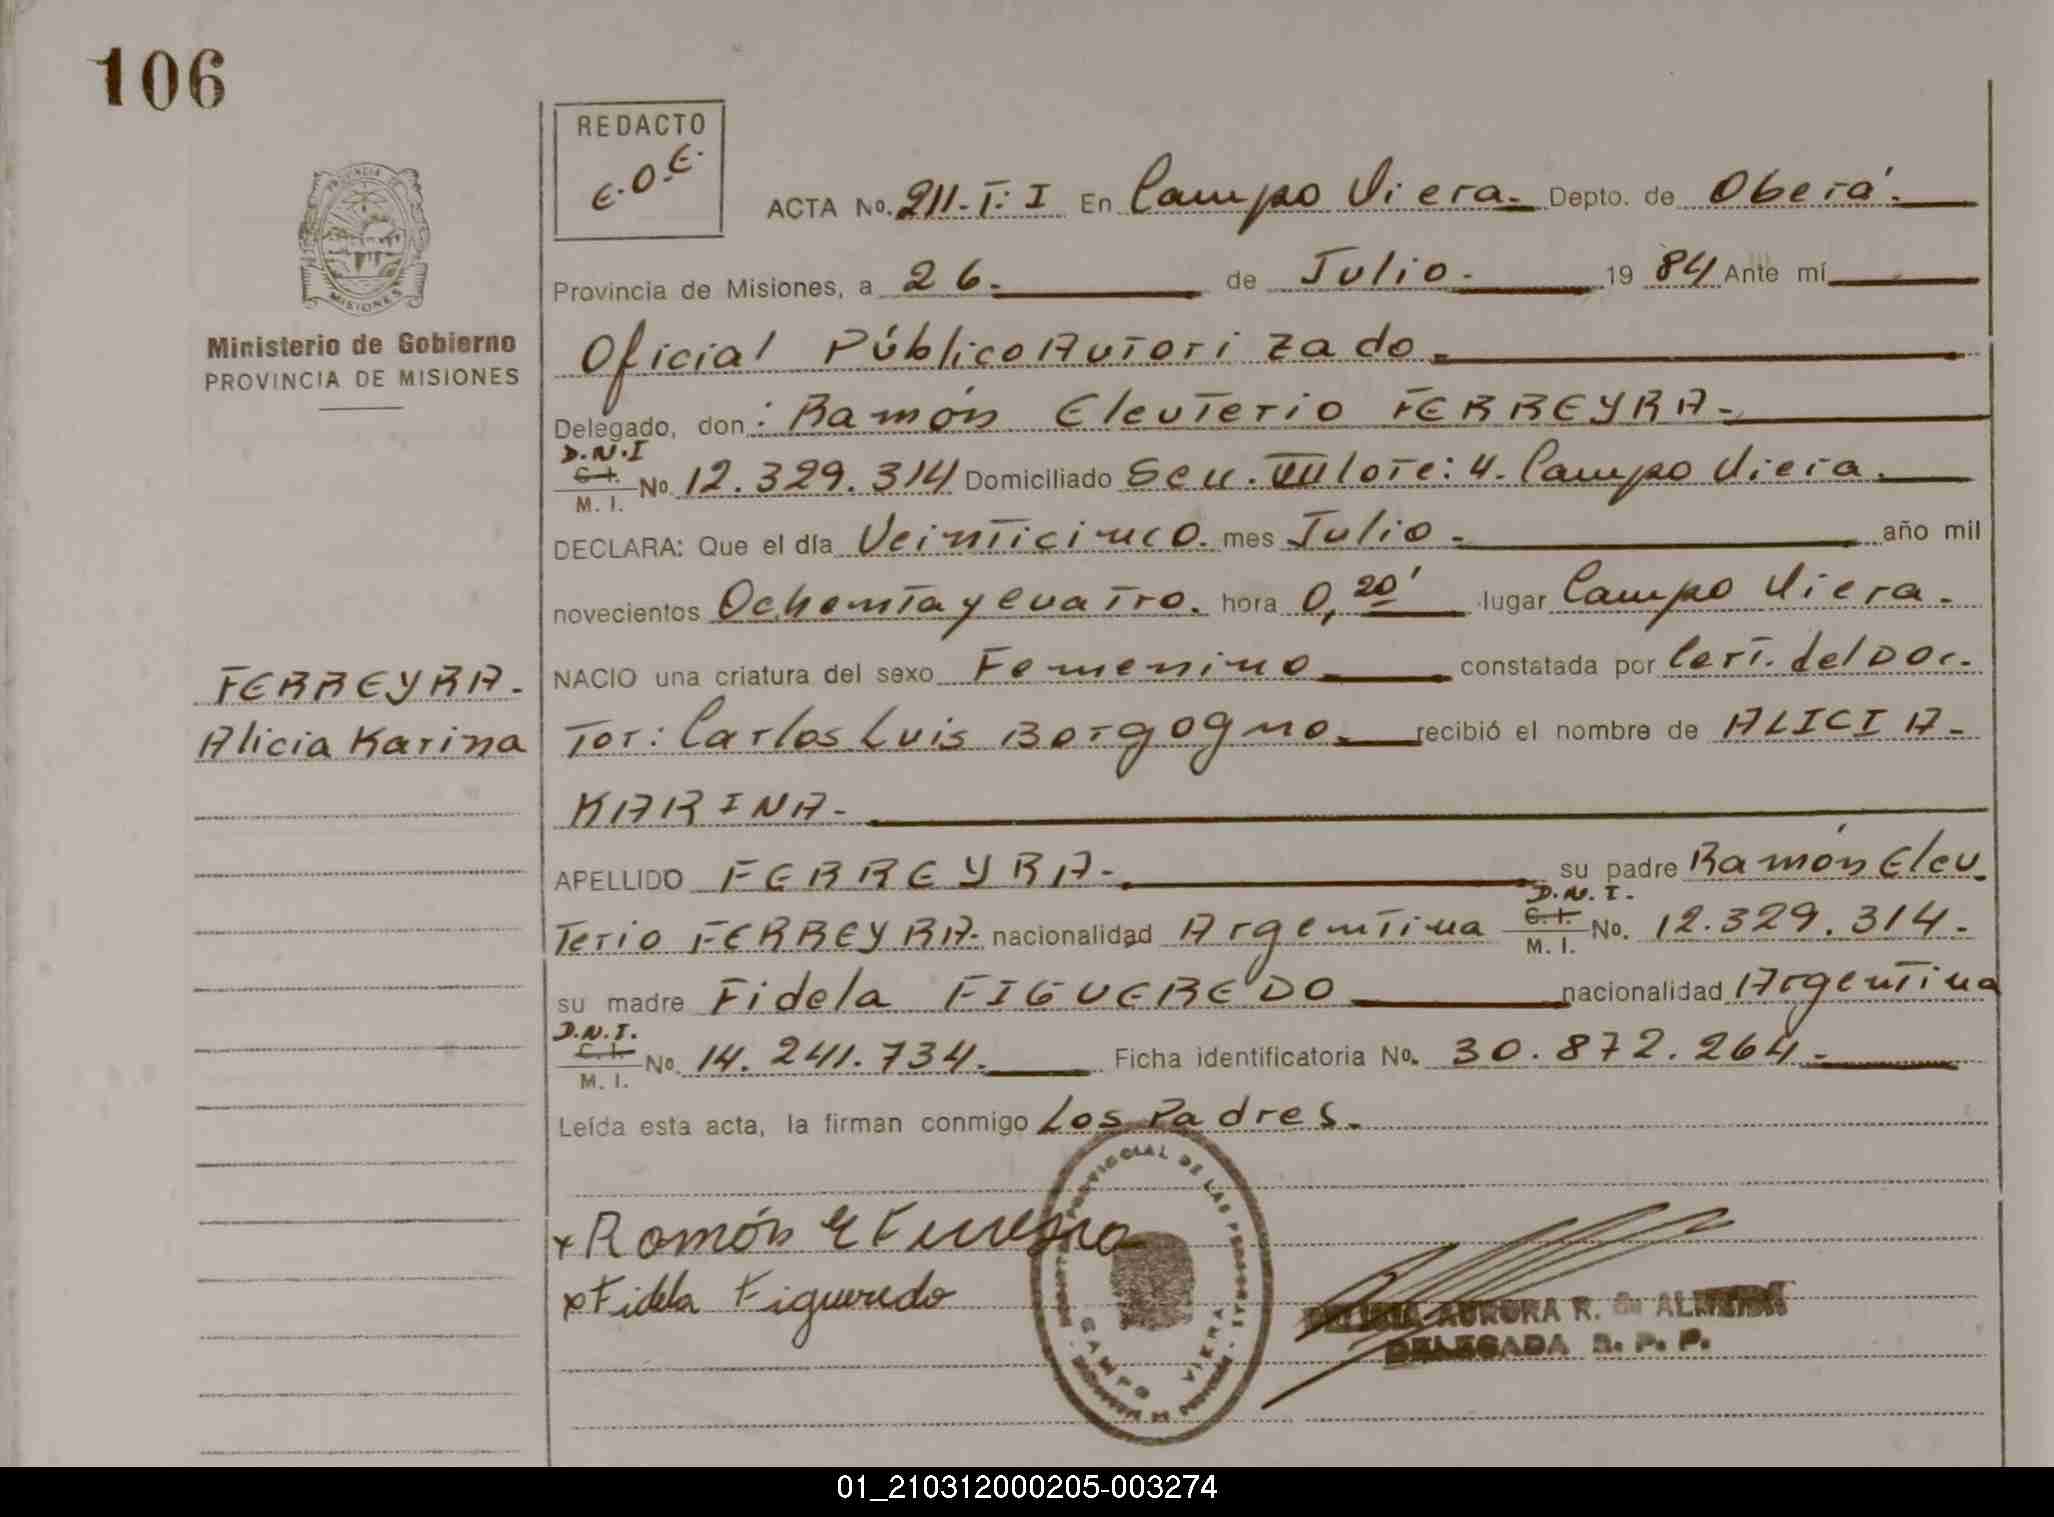 106
REDACTO
E.O.E.
ACTA No. 211-T: I En Campo Viera. Depto. de Oberá.
Provincia de Misiones, a 26. de Julio. 19 84 Ante mí
Oficial Público Autorizado.
Delegado, don: Ramón Eleuterio FERREYRA.
D.N.I
C.I.
M. I. No. 12.329.314 Domiciliado Secc. VIII lote: 4. Campo Viera.
DECLARA: Que el día Veinticinco. mes Julio. año mil
novecientos Ochenta y cuatro. hora 0,20' lugar Campo Viera.
NACIO una criatura del sexo Femenino constatada por Cert. del Doc.
tor: Carlos Luis Borgogno. recibió el nombre de ALICIA
KARINA.
APELLIDO FERREYRA. su padre Ramón Eleu.
terio FERREYRA. nacionalidad Argentina D.N.I. C.I. M. I. No. 12.329.314.
su madre Fidela FIGUEREDO nacionalidad Argentina
D.N.I.
C.I.
M. I. No. 14.241.734. Ficha identificatoria No. 30.872.264.
Leída esta acta, la firman conmigo Los Padres.
x Ramón E Ferreyra
x Fidela Figueredo
PROVINCIAL DE LAS PERSONAS
CAMPO VIERA
AURORA R. de
DELEGADA R. P. P.
PROVINCIA DE
MISIONES
Ministerio de Gobierno
PROVINCIA DE MISIONES
FERREYRA.
Alicia Karina
01_210312000205-003274